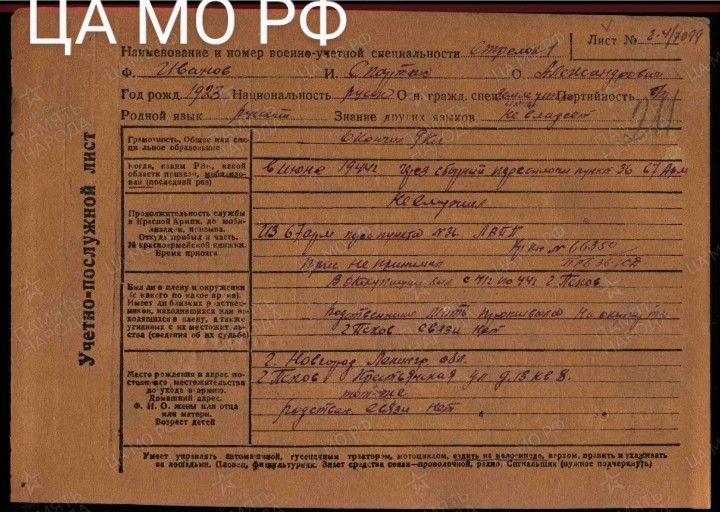 ЦА МО РФ
Лист № 2-4/7099
Наименование и номер военно-учетной специальности Стрелок 1
Ф. Иванов И. Спартак О. Александрович
Год рожд. 1923 Национальность русск Осн. гражд. спец. Партийность
Родной язык русский Знание других языков не владеет
211
Учетно-послужной лист
Грамотность, Общее или специальное образование
окончил 9 кл
Когда, каким РВК, какой области призван, мобилизован (последний раз)
в июне 1944г через сборный пересыльн пункт 36 67 Арм
Продолжительность службы в Красной Армии, до мобилизации, призыва. Откуда прибыл в часть. № красноармейской книжки. Время присяги
не служил
Из 67 арм пункта ЛВПП
Кр. кн № 66350
прис не принимал
Был ли в плену и окружении (с какого по какое время). Имеет ли близких родственников, находившихся или находящихся в плену, а также угнанных с их местожительства (сведения об их судьбе)
В оккупации был с 41г по 44г г. Псков
родственники мать проживала на оккуп
г Псков связи нет
Место рождения и адрес постоянного местожительства до ухода в армию. Домашний адрес. Ф. И. О. жены или отца или матери. Возраст детей
г. Новгород Ленингр обл.
г Псков Крестьянская ул д. 13 кв 8.
тот-же
родствен связи нет
Умеет управлять автомашиной, гусеничным трактором, мотоциклом, ездить на велосипеде, верхом, править и ухаживать
за лошадьми. Пловец, физкультурник. Знает средства связи—проволочной, радио. Сигнальщик (нужное подчеркнуть)